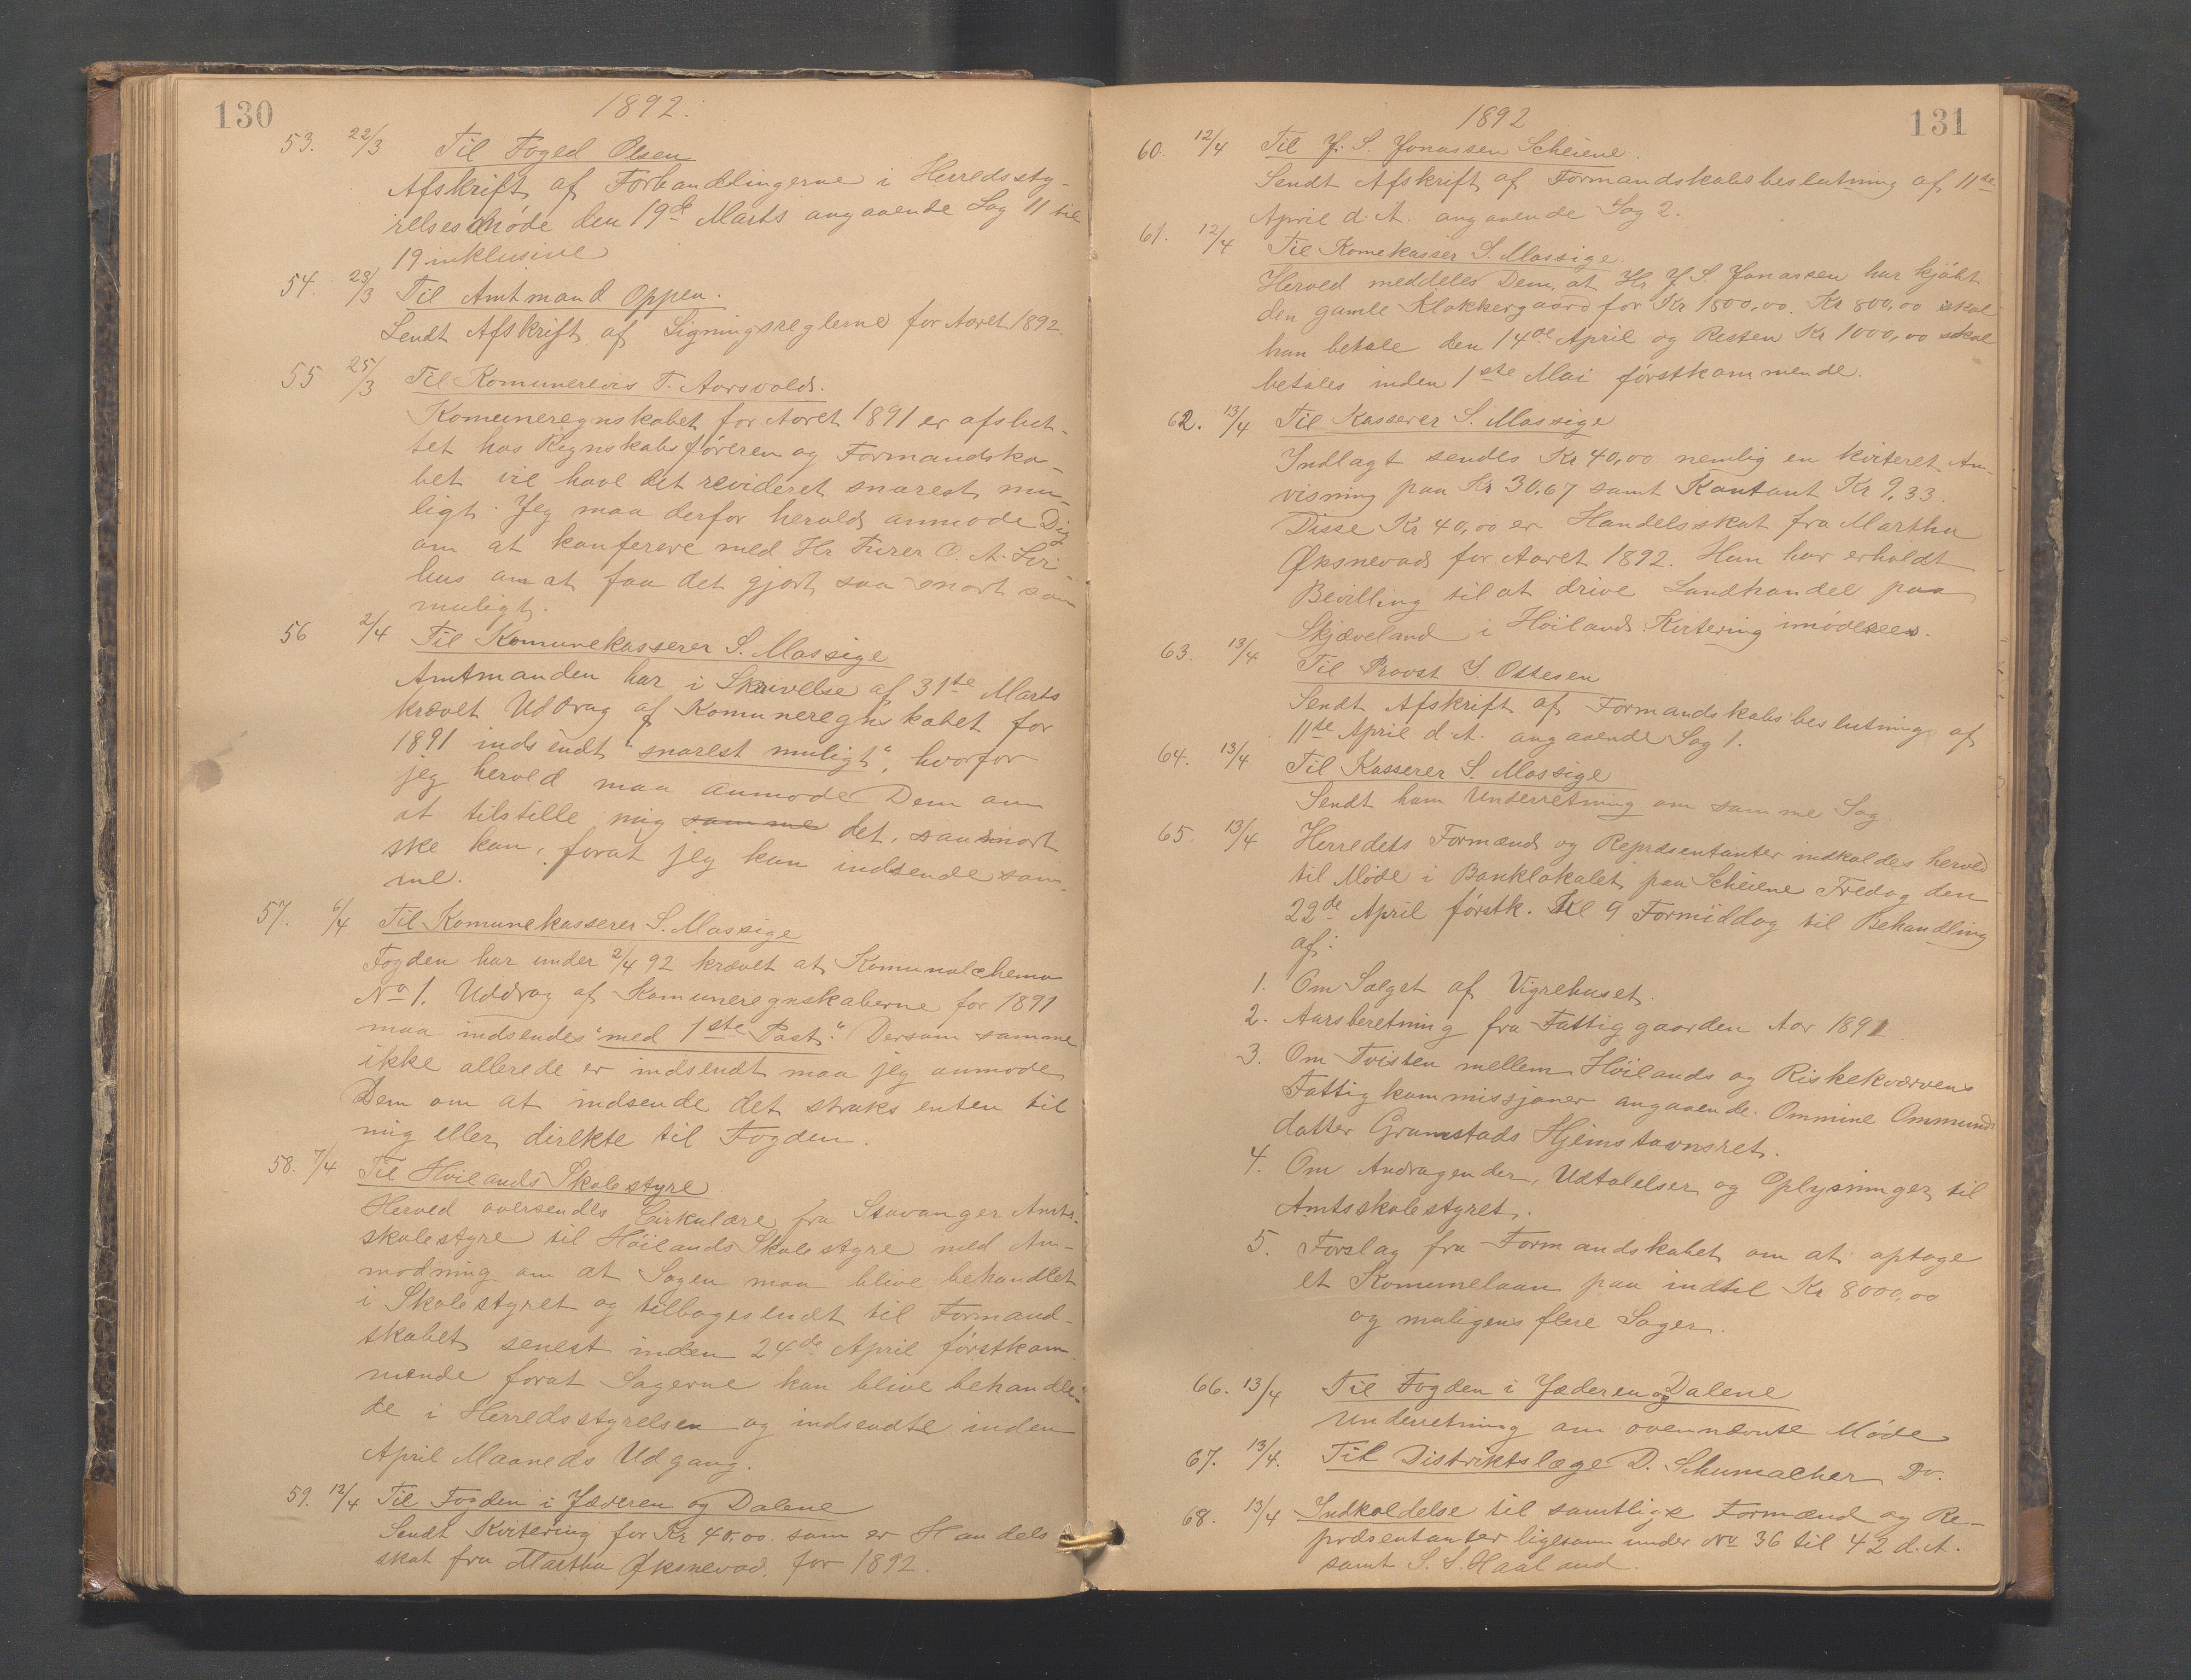 130
1892.
53. 22/3 Til Foged Olsen
Afskrift af Forhandlingerne i Herredssty-
relsesmøde den 19de Marts angaaende Sag 11 til
19 inklusive
54. 23/3 Til Amtmand Oppen.
Sendt Afskrift af Ligningsreglerne for Aaret 1892.
55 25/3 Til Komunerevis T. Aarsvold.
Komuneregnskabet for Aaret 1891 er afslut-
tet hos Regnskabsføreren og Formandska-
bet vil have det revideret snarest mu-
ligt. Jeg maa derfor herved anmode Dig
om at konferere med Hr Furer O. A. Sir-
hus om at faa det gjort saa snart som
muligt.
56 2/4 Til Komunekasserer S. Massige
Amtmanden har i Skrivelse af 31te Marts
krævet Uddrag af Komuneregnskabet for
1891 indsendt "snarest muligt", hvorfor
jeg herved maa anmode Dem om
at tilstille mig samme det, saasnart
ske kan, forat jeg kan indsende sam-
me.
57. 6/4 Til Komunekasserer S. Massige
Fogden har under 2/4 92 krævet at Komunalchema
No 1. Uddrag af Komuneregnskaberne for 1891
maa indsendes "med 1ste Post." Dersom samme
ikke allerede er indsendt maa jeg anmode
Dem om at indsende det straks enten til
mig eller direkte til Fogden.
58. 7/4 Til Høilands Skolestyre
Herved oversendes Cirkulære fra Stavanger Amts-
skolestyre til Høilands Skolestyre med An-
modning om at Sagen maa blive behandlet
i Skolestyret og tilbagesendt til Formand-
skabet senest inden 24de April førstkom-
mende forat Sagerne kan blive behandle-
de i Herredsstyrelsen og indsendte inden
April Maaneds Udgang.
59. 12/4 Til Fogden i Jæderen og Dalene
Sendt Kvitering for Kr 40,00 som er Handels
skat fra Martha Øksnevad for 1892.
131
1892
60. 12/4 Til J. S. Jonassen Scheiene.
Sendt Afskrift af Formandskabsbeslutning af 11te
April d. A. angaaende Sag 2.
61. 12/4 Til Komekasser S. Massige.
Herved meddeles Dem, at Hr J. S. Jonassen har kjøbt
den gamle Klokkergaard for Kr 1800,00. Kr 800,00 skal
han betale den 14de April og Resten Kr 1000,00 skal
betales inden 1ste Mai førstkommende.
62. 13/4 Til Kasserer S. Massige
Indlagt sendes Kr 40,00 nemlig en kviteret An-
visning paa Kr 30,67 samt Kontant Kr 9,33.
Disse Kr 40,00 er Handelsskat fra Martha
Øksnevad for Aaret 1892. Hun har erholdt
Bevilling til at drive Landhandel paa
Skjæveland i Høiland. Kvitering imødesees.
63. 13/4 Til Provst J. Ottesen
Sendt Afskrift af Formandskabsbeslutning af
11te April d. A. angaaende Sag 1.
64. 13/4 Til Kasserer S. Massige
Sendt ham Underretning om samme Sag.
65. 13/4 Herredets Formænd og Repræsentanter indkaldes herved
til Møde i Banklokalet paa Scheiene Fredag den
22de April førstk. Kl 9 Formiddag til Behandling
af:
1. Om Salget af Vigrehuset.
2. Aarsberetning fra Fattiggaarden Aar 1891
3. Om Tvisten mellem Høilands og Riskekværvens
Fattigkommissjoner angaaende Ommine Ommunds
datter Gramstads Hjemstavnsret.
4. Om Andragender, Udtalelser og Oplysninger til
Amtsskolestyret.
5. Forslag fra Formandskabet om at optage
et Komunelaan paa indtil Kr 8000,00
og muligens flere Sager.
66. 13/4 Til Fogden i Jæderen og Dalene
Underretning om ovennævnte Møde
67. 13/4. Til Distriktslæge D. Schumacher Do.
68. 13/4 Indkaldelse til samtlige Formænd og Re-
præsentanter ligesom under No 36 til 42 d. A.
samt S. S. Haaland.